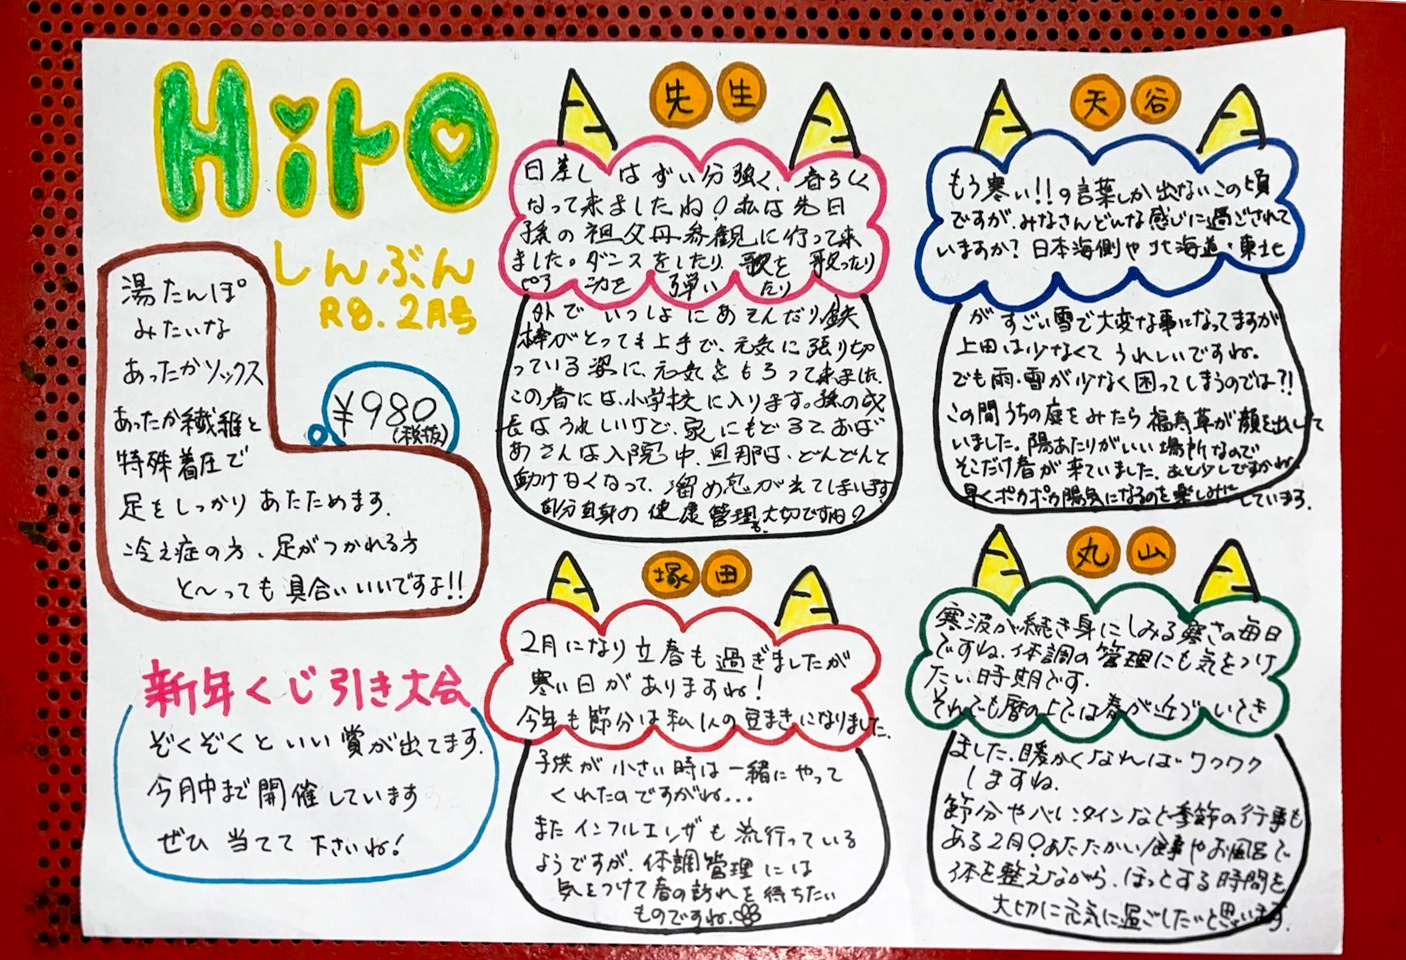 Hiro
しんぶん
R8.2月号
湯たんぽ
みたいな
あったかソックス
¥980
(税抜)
あったか繊維と
特殊着圧で
足をしっかり あたためます.
冷え症の方、足がつかれる方
と〜っても 具合いいいですよ!!
新年くじ引き大会
ぞくぞくといい賞が出てます.
今月中まで開催しています
ぜひ 当てて 下さいね!
先生
日差しはずい分強く、春らしく
なって来ましたね♀私は先日
孫の祖父母参観に行って来
ました。ダンスをしたり 歌を 歌ったり
ピアノを 弾いたり
外で いっしょにあそんだり、鉄
棒がとっても上手で、元気に張り切
っている姿に、元気をもらって来ました.
この春には、小学校に入ります。孫の成
長はうれしいけど、家にもどると、おば
あさんは入院中、旦那は、どんどんと
動けなくなって、溜め息が出てしまいます
自分自身の健康管理も大切ですね♀
天谷
もう寒い!!の言葉しか出ないこの頃
ですが、みなさんどんな感じに過ごされて
いますか?日本海側や北海道・東北
がすごい雪で大変な事になってますが
上田は少なくてうれしいですね.
でも雨・雪が少なく困ってしまうのでは?!
この間うちの庭をみたら福寿草が顔を出して
いました。陽あたりがいい場所なので
そこだけ春が来ていました.あと少しですかね
早くポカポカ陽気になるのを楽しみにしています.
塚田
2月になり立春も過ぎましたが
寒い日がありますね!
今年も節分は私1人の豆まきになりました.
子供が小さい時は一緒にやって
くれたのですがね...
またインフルエンザも流行っている
ようですが、体調管理には
気をつけて春の訪れを待ちたい
ものですね.
丸山
寒波が続き身にしみる寒さの毎日
ですね、体調の管理にも気をつけ
たい時期です.
それでも暦の上では春が近づいてき
ました.暖かくなればワクワク
しますね.
節分やバレンタインなど季節の行事も
ある2月♀あたたかい食事やお風呂で
体を整えながら、ほっとする時間を
大切に元気に過ごしたいと思います.